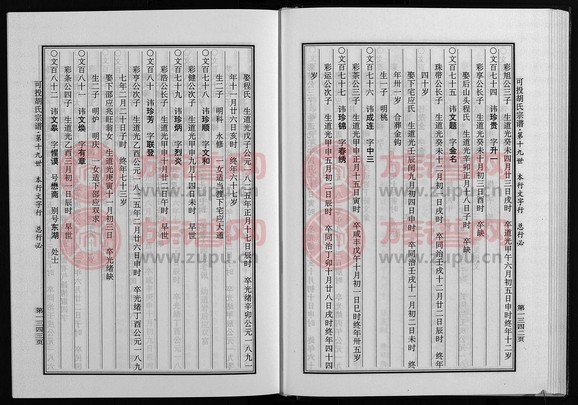 彩旭公三子 生道光癸未四月廿三日戌时 卒道光甲午六月初五日申时终年十二岁
〇文百七十四 讳珍贵 字升一
彩享公长子 生道光癸未十月初三日酉时 卒缺
娶后山头程氏 生道光辛卯正月十八日子时 卒缺
〇文百七十五 讳文题 字金名
珠带公长子 生道光癸未十二月初四日申时 卒同治壬戌十二月廿二日戌时 终年
四十岁
娶下宅应氏 生道光壬辰闰九月初四日申时 卒同治壬戌十一月初二日未时 终
年卅一岁 合葬金钩
生一子 明桃
〇文百七十六 讳成连 字中三
彩茶公三子 生道光甲申正月十五日寅时 卒咸丰戊午十月初一日巳时终年卅五岁
〇文百七十七 讳珍锦 字春绣
彩运公次子 生道光甲申五月初二日辰时 卒同治丁卯十月廿八日戌时 终年四十四
岁
可投胡氏宗谱·第十九世 本行文字行 总行必
第一三四二页
娶程氏 生道光戊子公元一八二八年正月十七日辰时 卒光绪辛卯公元一八九一
年十一月廿六日亥时 终年六十七岁
生二子 明科 水修 一女适当渡下宅应大通
〇文百七十八 讳珍顺 字文和
彩健公次子 生道光甲申九月十四日未时 早世
〇文百七十九 讳珍炳 字烈炎
彩浩公长子 生道光甲申十二月廿二日午时 早世
〇文百八十 讳珍芳 字联登
彩亨公次子 生道光乙酉公元一八二五年二月廿六日申时 卒光绪丁酉公元一八九
七年二月二十日子时 终年七十三岁
娶下邵应亮旺翁女 生道光庚寅十一月初三日 卒光绪缺
生二子 明炉 明庆 一女适下邵应双求
〇文百八十一 讳文焕 字有章
彩条公次子 生道光乙酉二月初三日辰时 早世
〇文百八十二 讳文皋 字惟谟 号懋斋 别号东湖 处士
可投胡氏宗谱·第十九世 本行文字行 总行必
第一三四三页
族谱网
www.zupu.cn
族谱网
www.zupu.cn